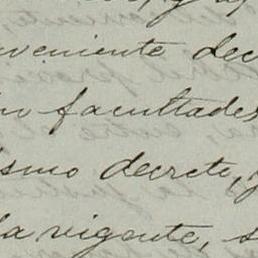 veniente dec
n facultades
ismo decreto, y
la vigente, s